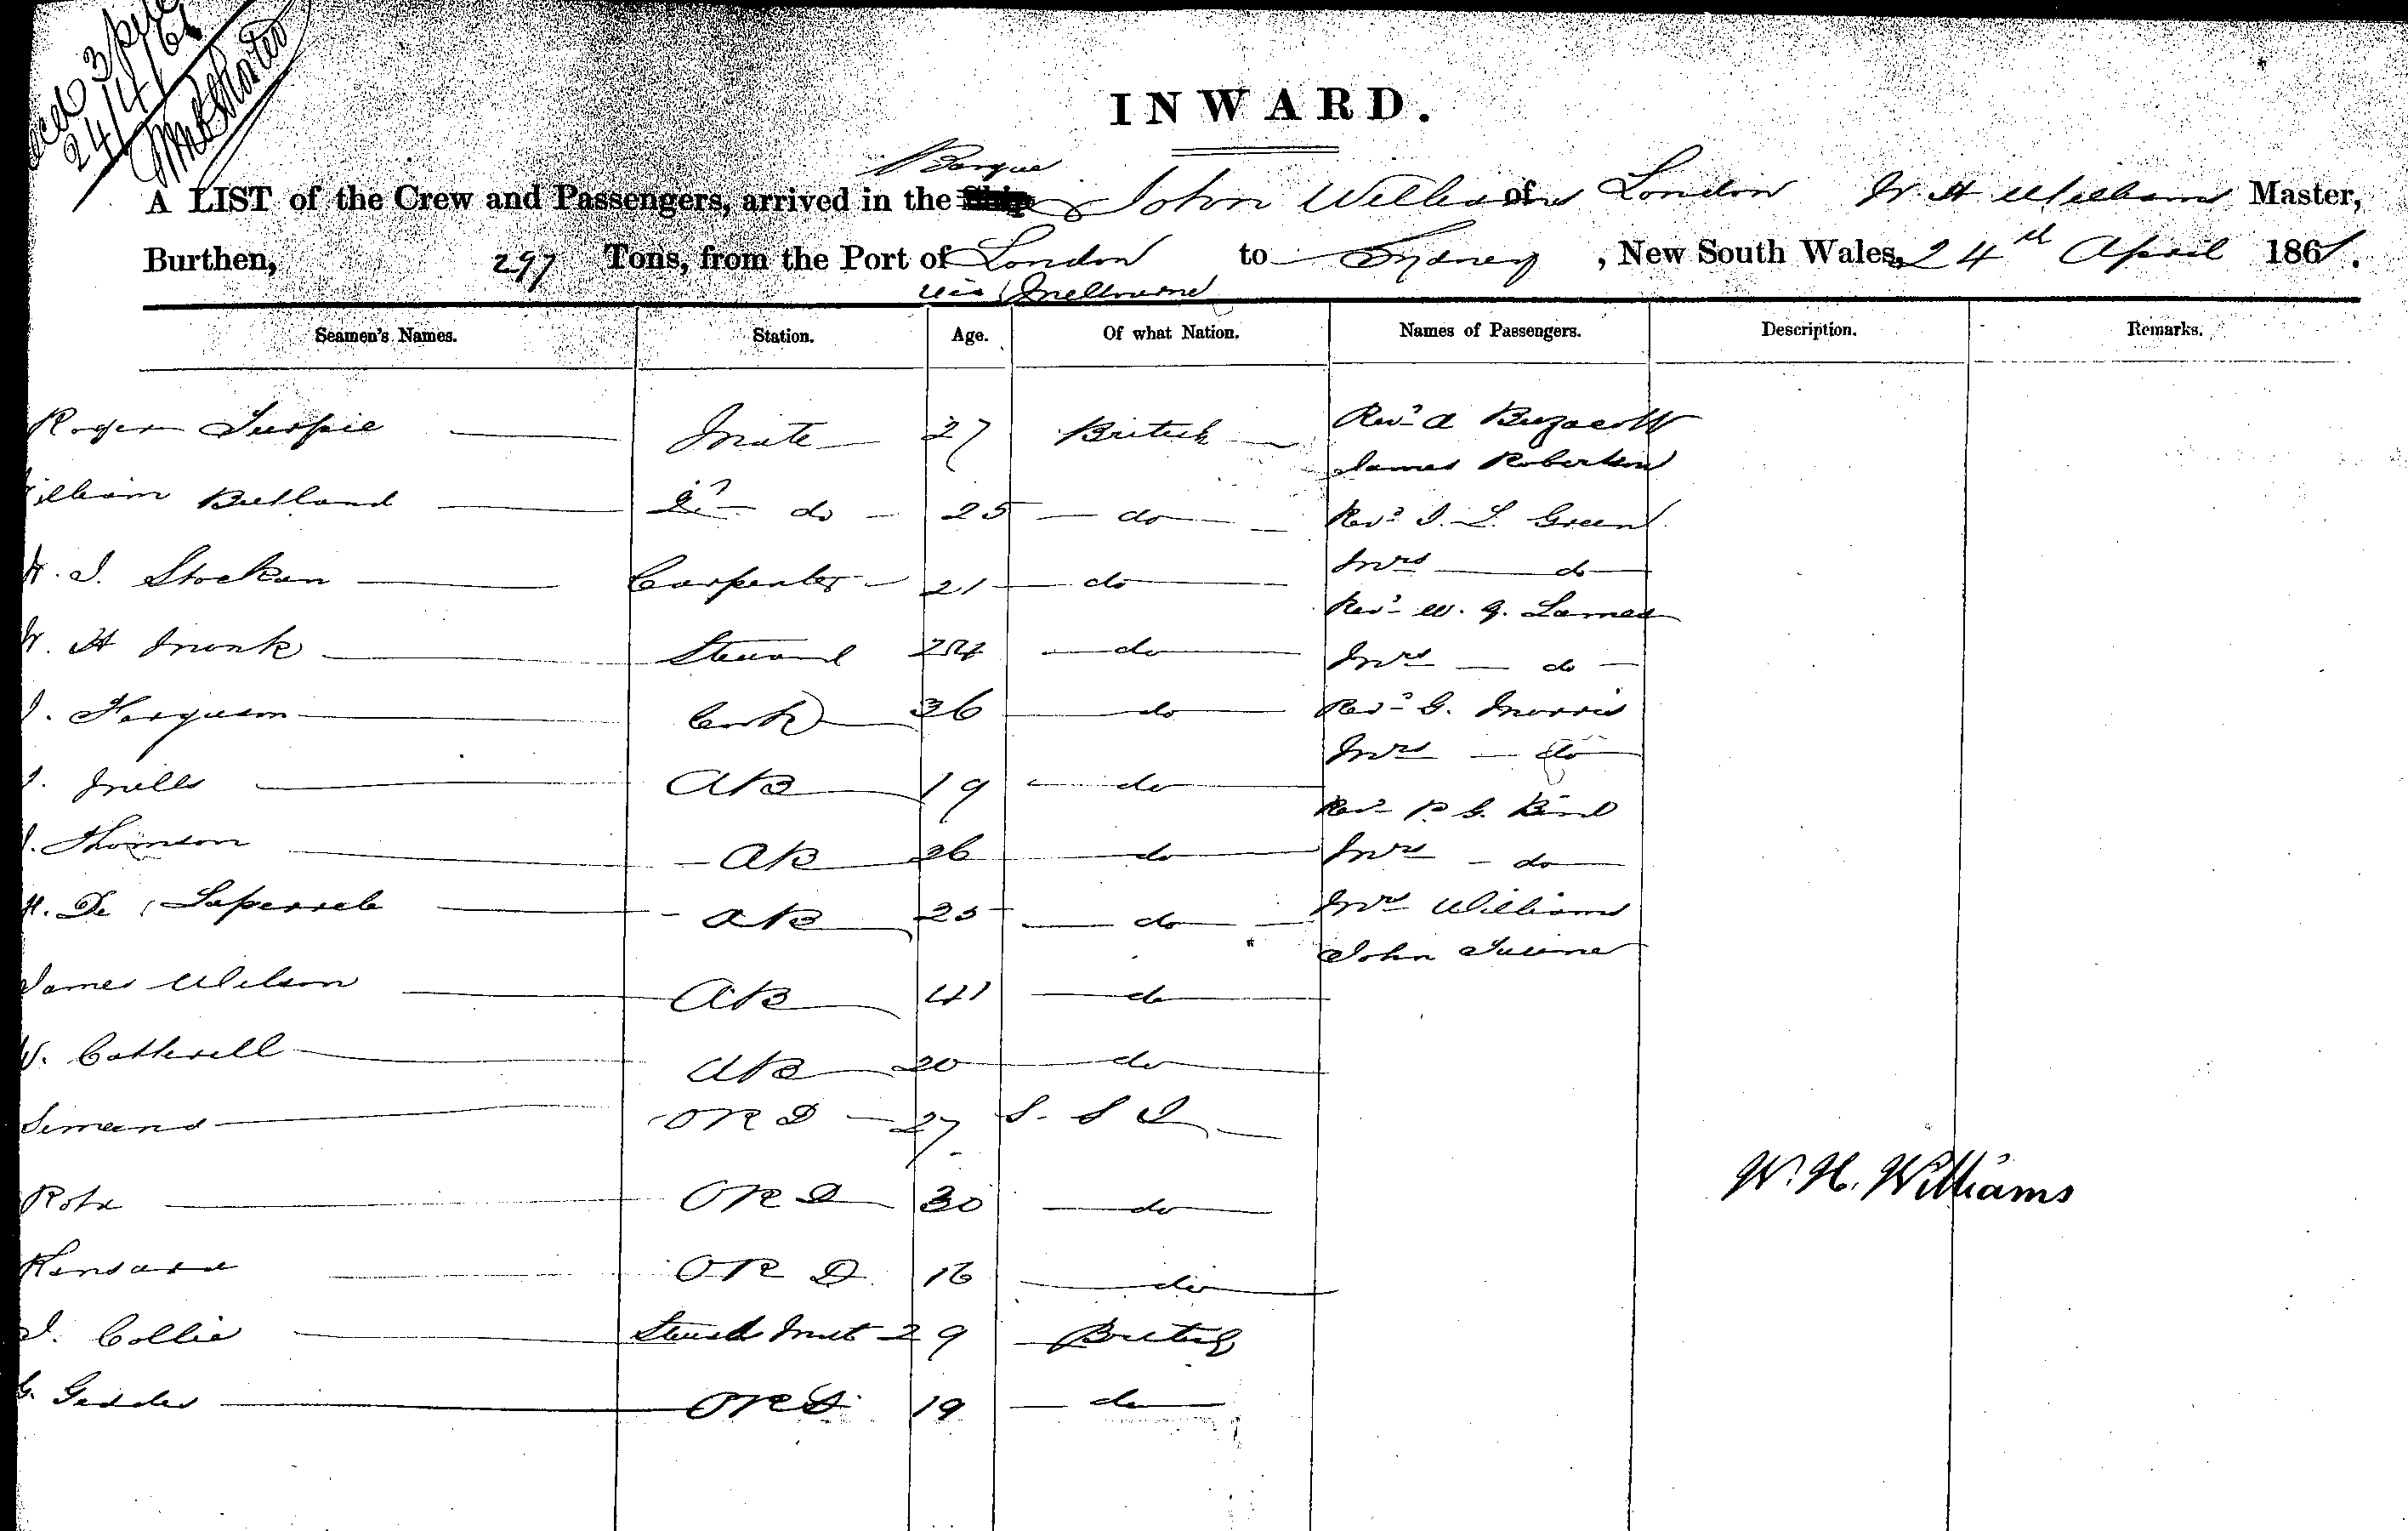 24/4/61
INWARD.
Barque
A LIST of the Crew and Passengers, arrived in the Ship John Williams of London W H Williams Master,
Burthen, 297 Tons, from the Port of London to Sydney, New South Wales, 24th April 1861.
via Melbourne
Seamen's Names. Station. Age. Of what Nation. Names of Passengers. Description. Remarks.
Roger Turpie Mate 27 British Revd A Buzacott
James Robertson
William Butland 2nd do 25 do Revd J. L. Green
Mrs do
H. J. Stockan Carpenter 21 do
Revd W. G. Lawes
W. H Monk Steward 24 do Mrs do
J. Ferguson Cook 36 do Revd G. Morris
Mrs do
J. Mills AB 19 do
Revd P. G. Bird
J. Thomson AB 26 do Mrs do
H. De AB 25 do Mrs Williams
John Turner
James Wilson AB 41 do
W. Cotterell AB 20 do
ORD 27 S. S I
W. H. Williams
Rota ORD 30 do
ORD 16 do
J. Collie 29 British
G. Geddes ORD 19 do